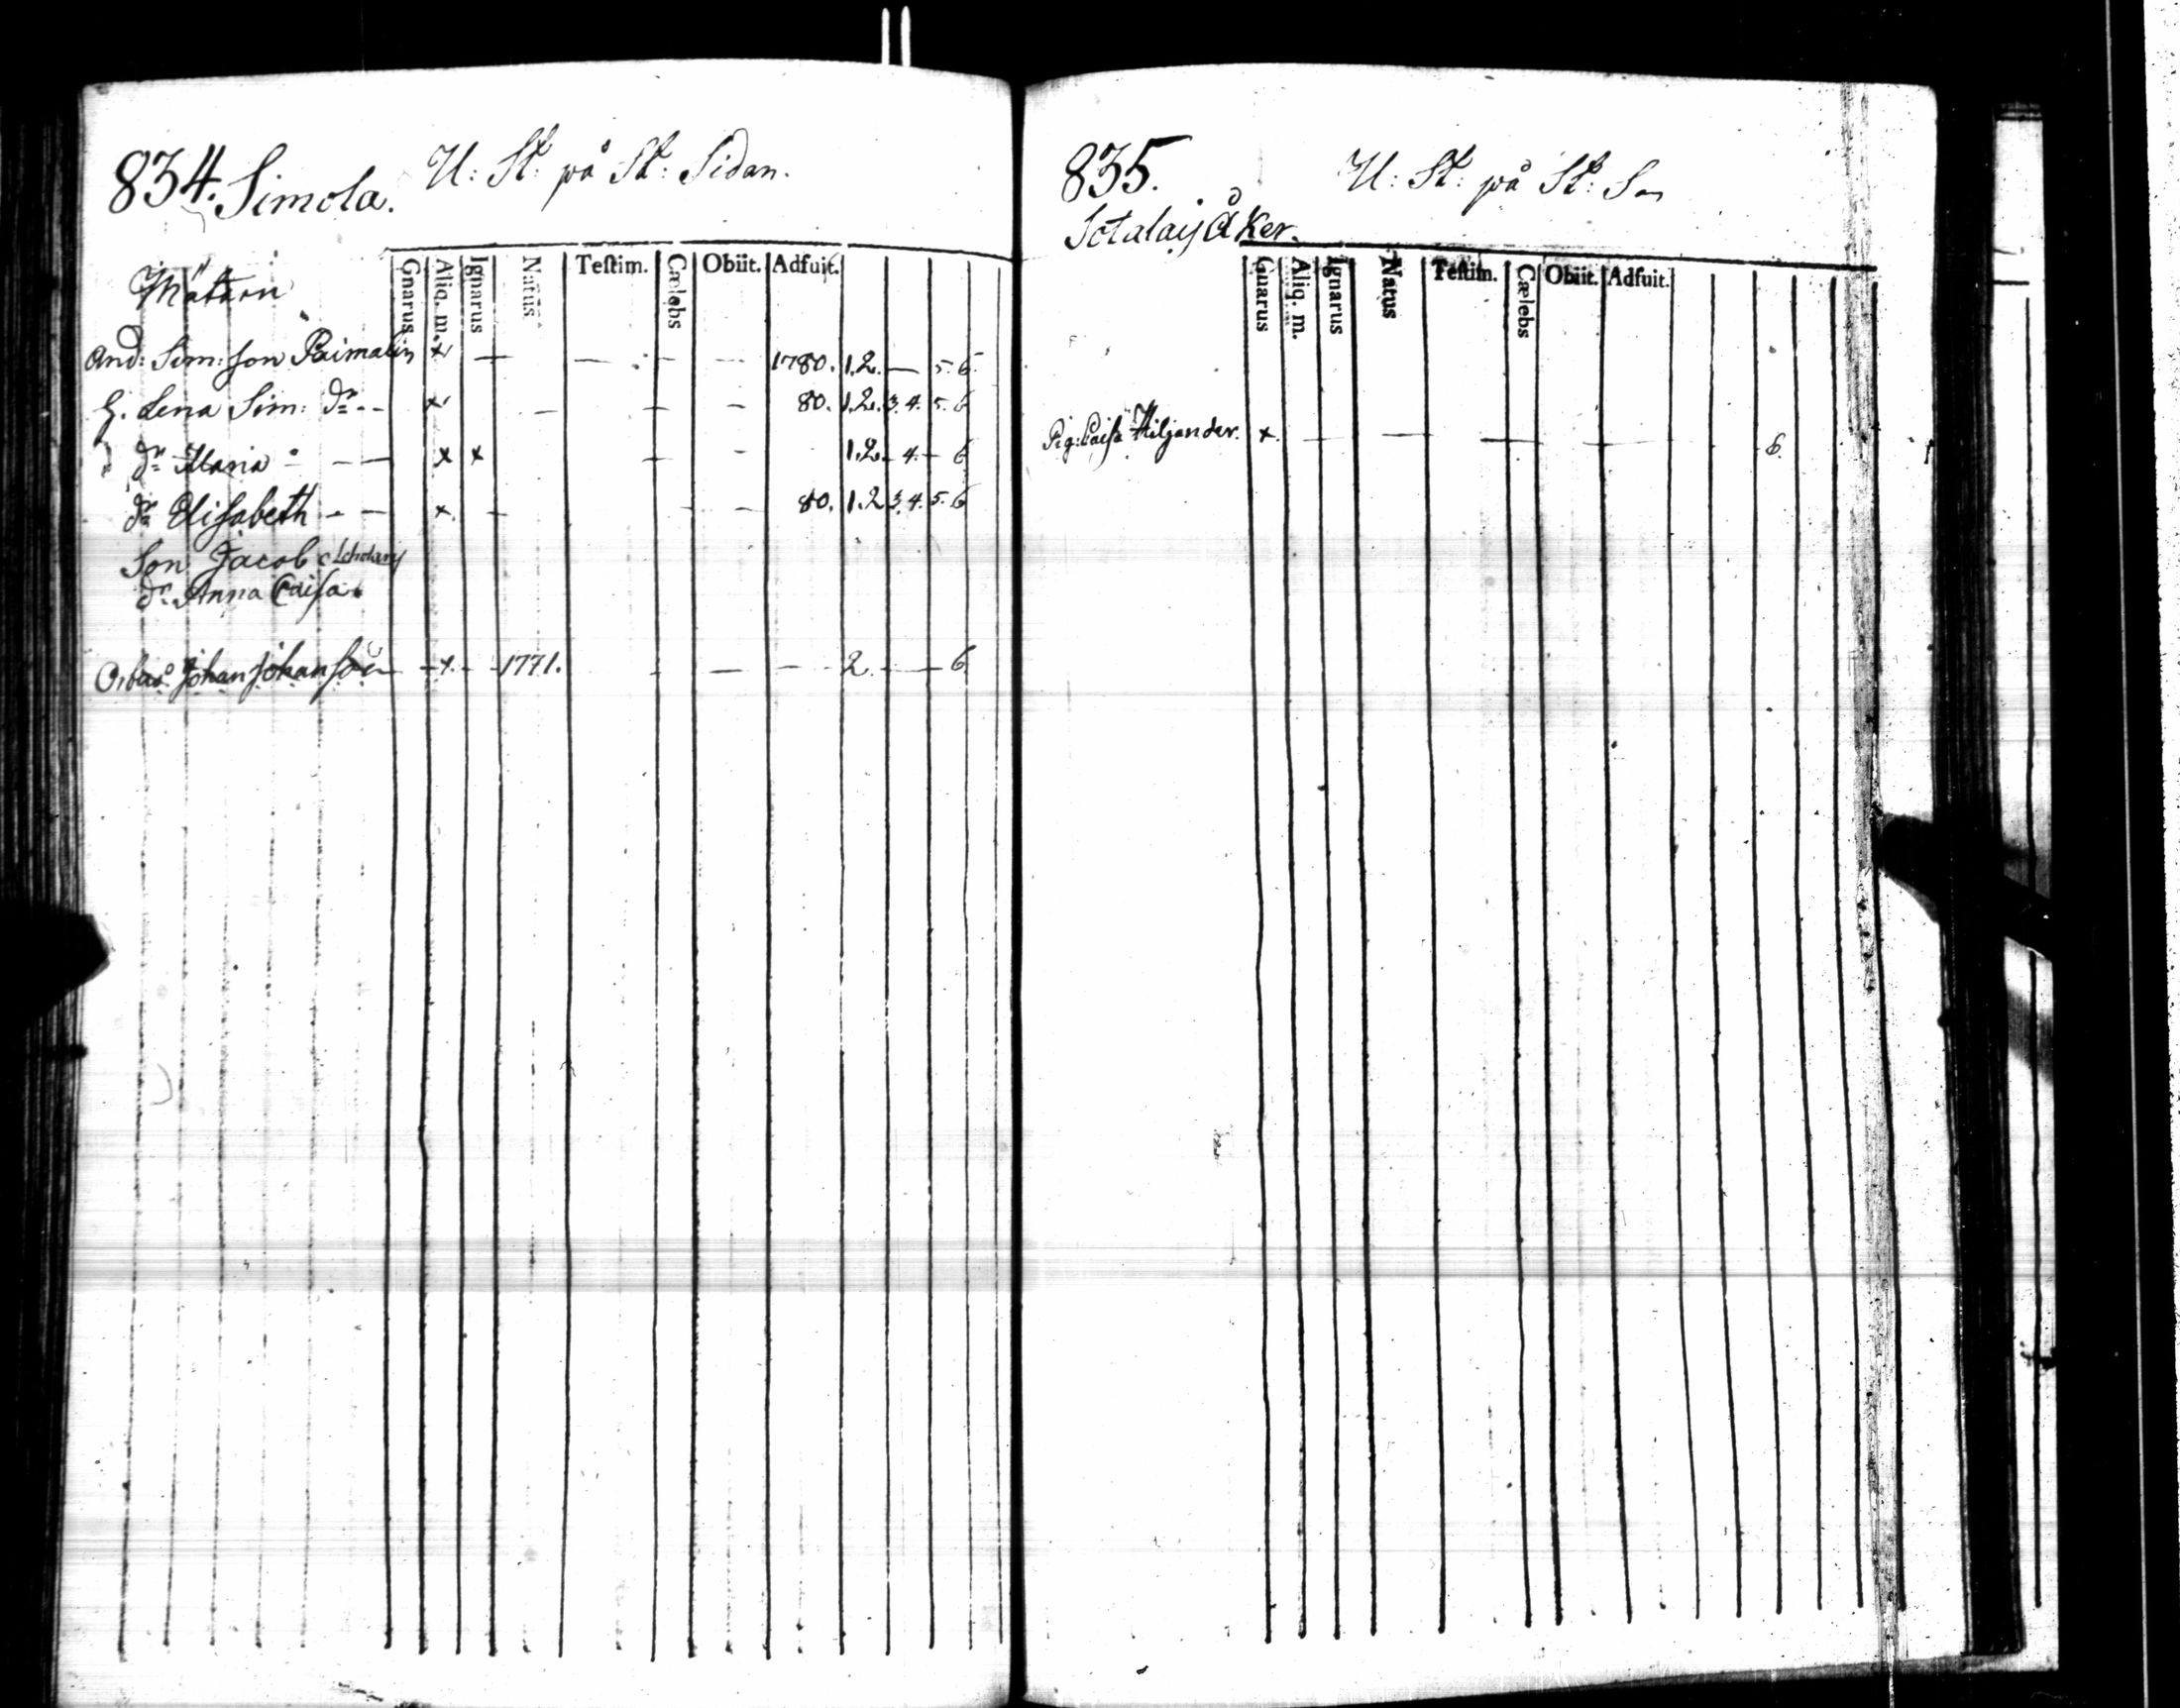 834. Simola. U: St: på St: Sidan.
Gnarus Aliq. m. Ignarus Natus Testim. Cælebs Obiit. Adfuit.
And: Sim: son Paimalin x — — — — 1780. 1.2. — 5. 6.
H. Lena Sim: dr - - x — — — 80. 1.2. 3. 4. 5. 6
dr Maria - — — x x — - 1.2. - 4. - 6
dr Elisabeth - - x. - - - 80. 1.2 3. 4. 5. 6
Son Jacob
dr. Anna Caisa.
Johan Johanson - x. - - 1771. - — - - 2. - — 6
835. U: St: på St: S
åker.
Gnarus Aliq. m. Ignarus Natus Testim. Cælebs Obiit. Adfuit.
Pig: Caisa Hiljander. x. — — — — — 6.